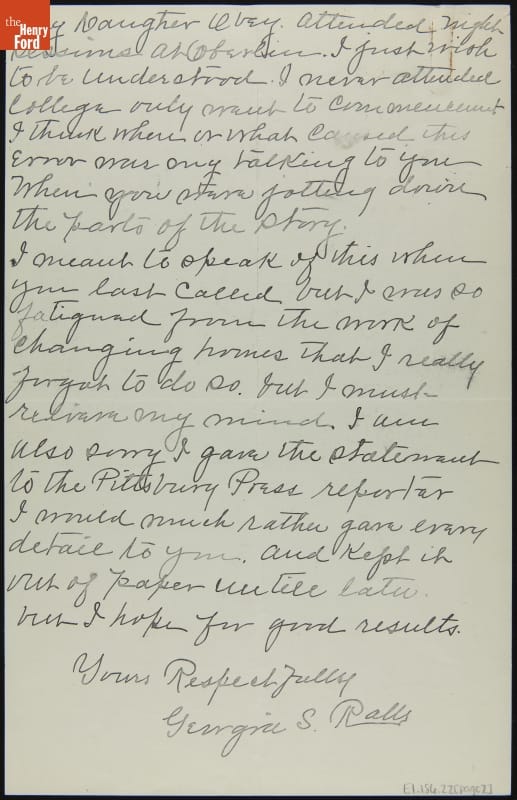 the
Henry
Ford
my Daugher Obey. attended night
sessions at Oberlin. I just wish
to be understood. I never attended
College only want to commencement
I think when or what caused this
Error was my talking to you
When you ware jotting down
the parts of the story.
I meant to speak of this when
you last called but I was so
fatigued from the work of
changing homes that I really
forgot to do so. but I must
releave my mind. I am
also sorry I gave the statement
to the Pittsburg Press reporter
I would much rather gave every
detail to you. and kept it
out of paper untill later.
but I hope for good results.
Yours Respectfully
Georgia S. Ralls
E1.186.22[page2]